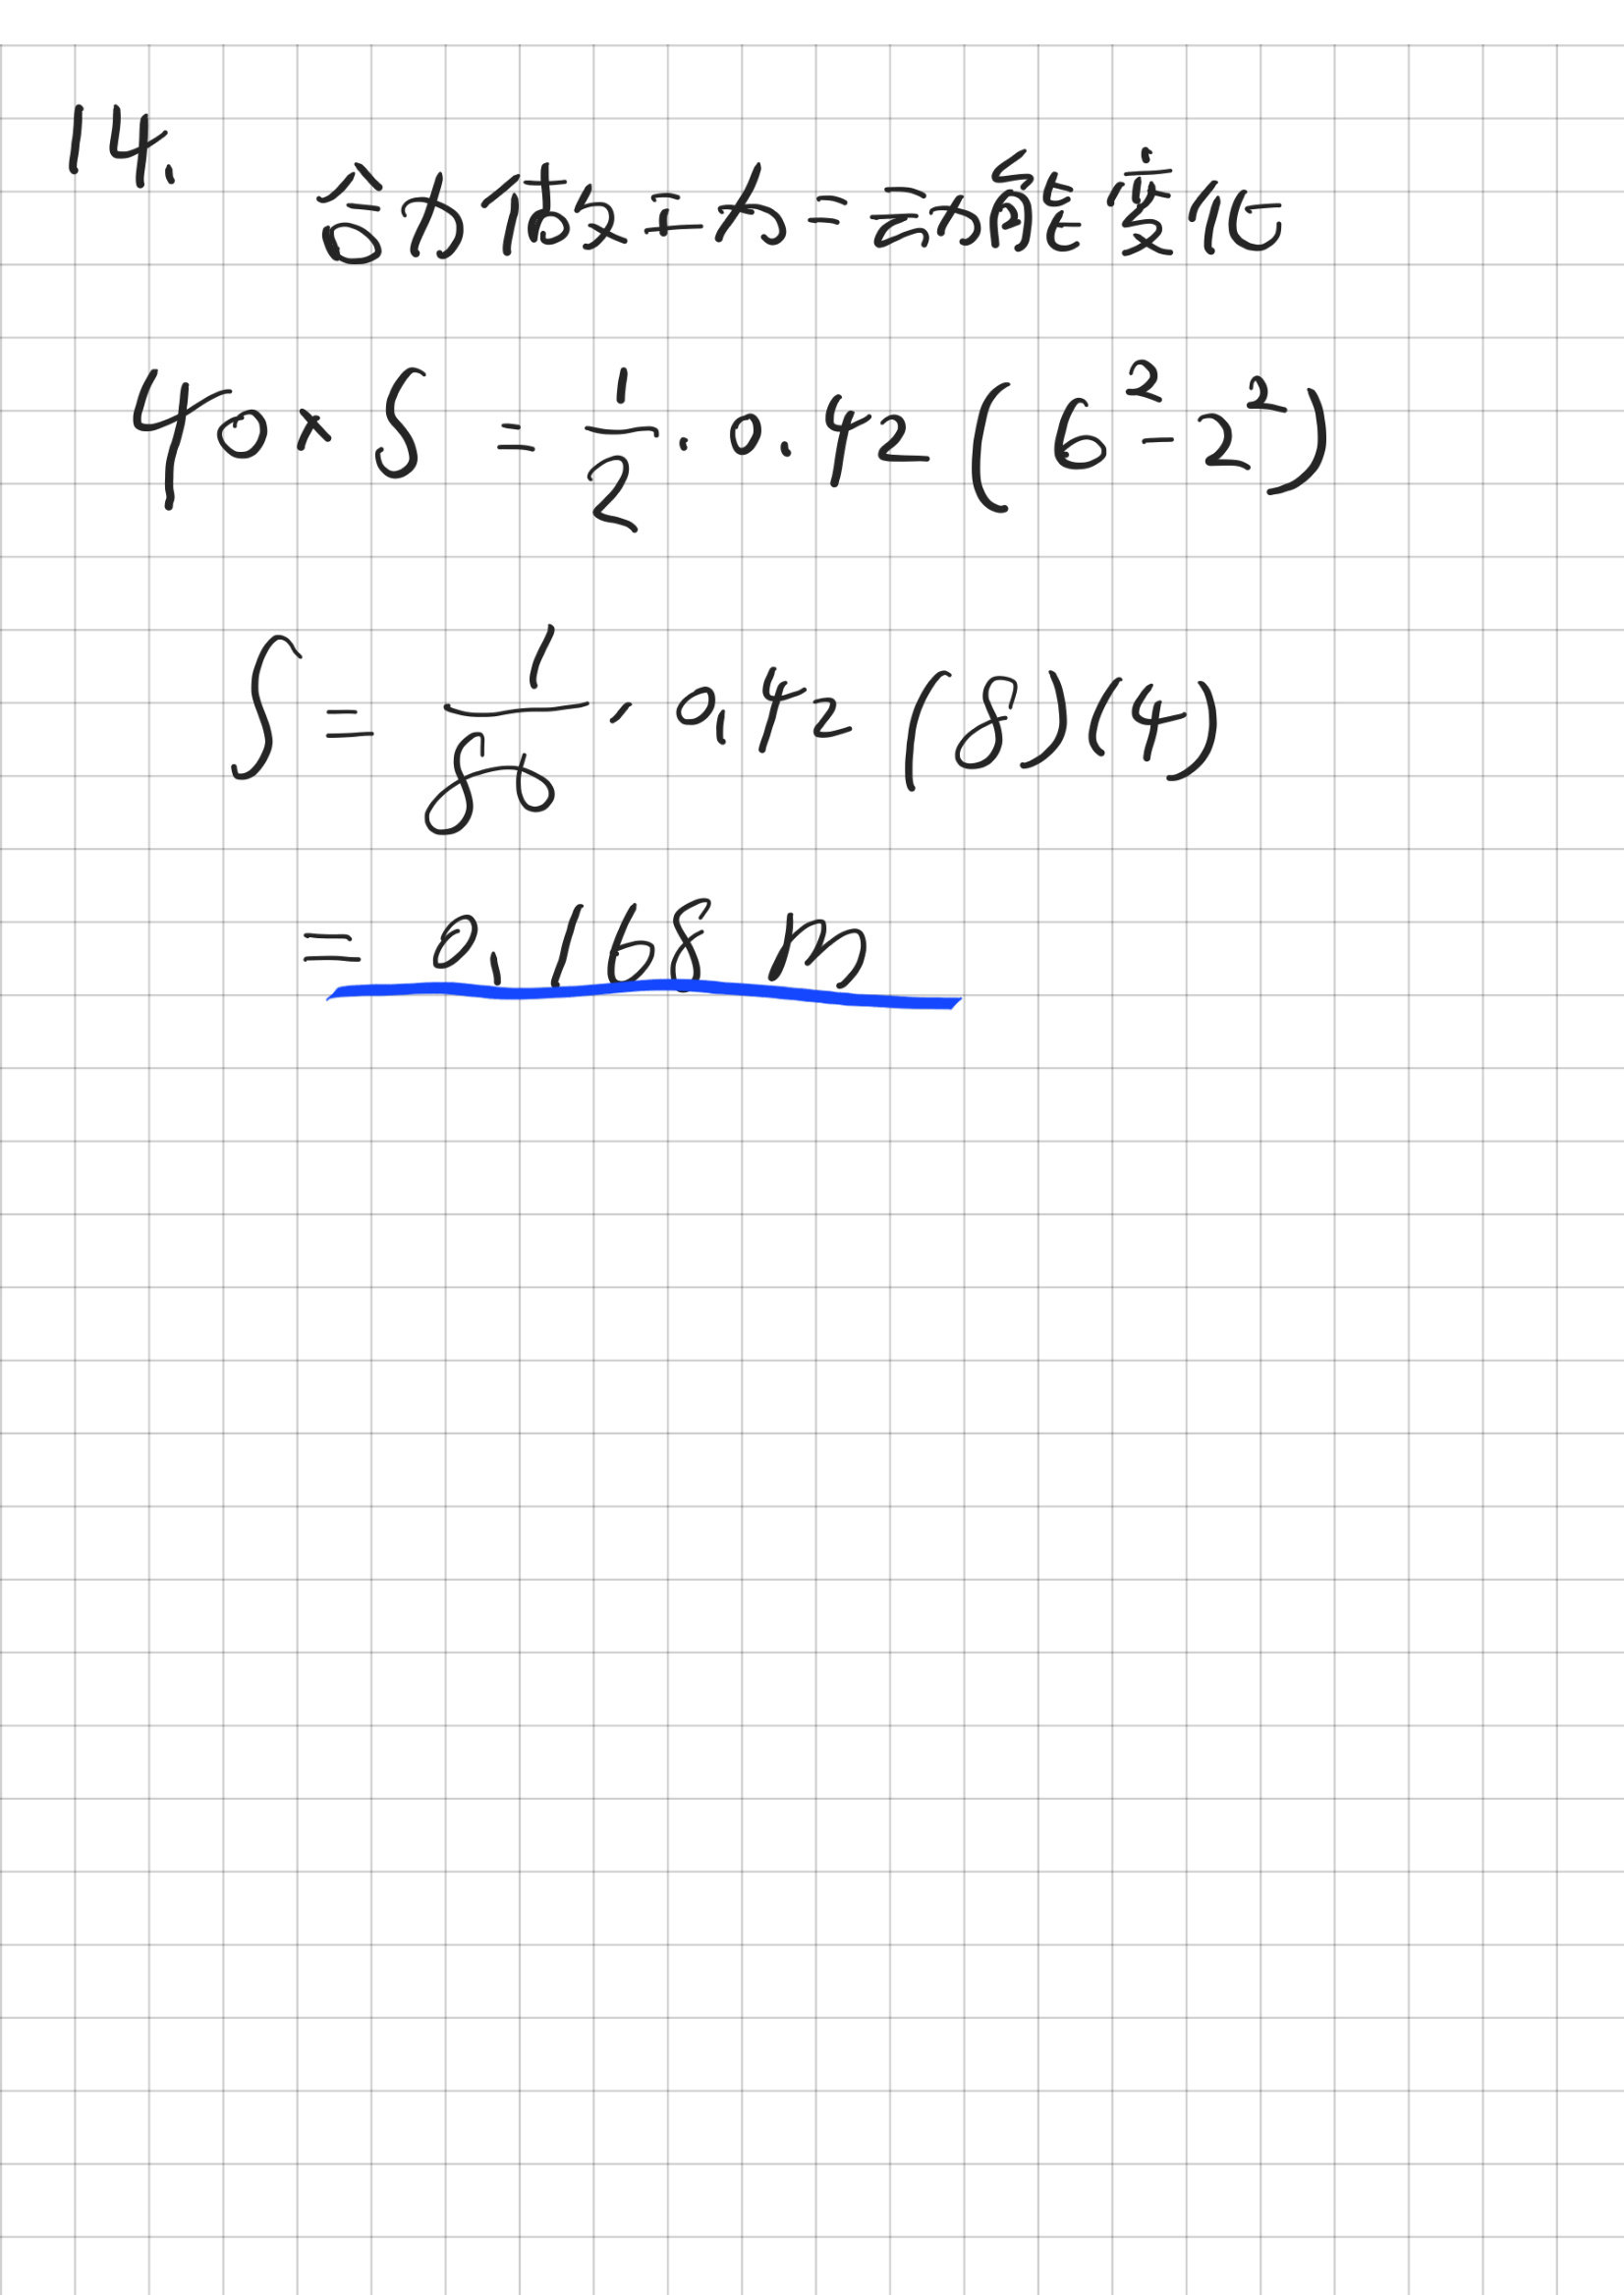 14.
合力作功=云力能變化
40 × S = 1/2 · 0.42 (6² - 2²)
S = 1/80 · 0.42 (8)(4)
= 0.168 m